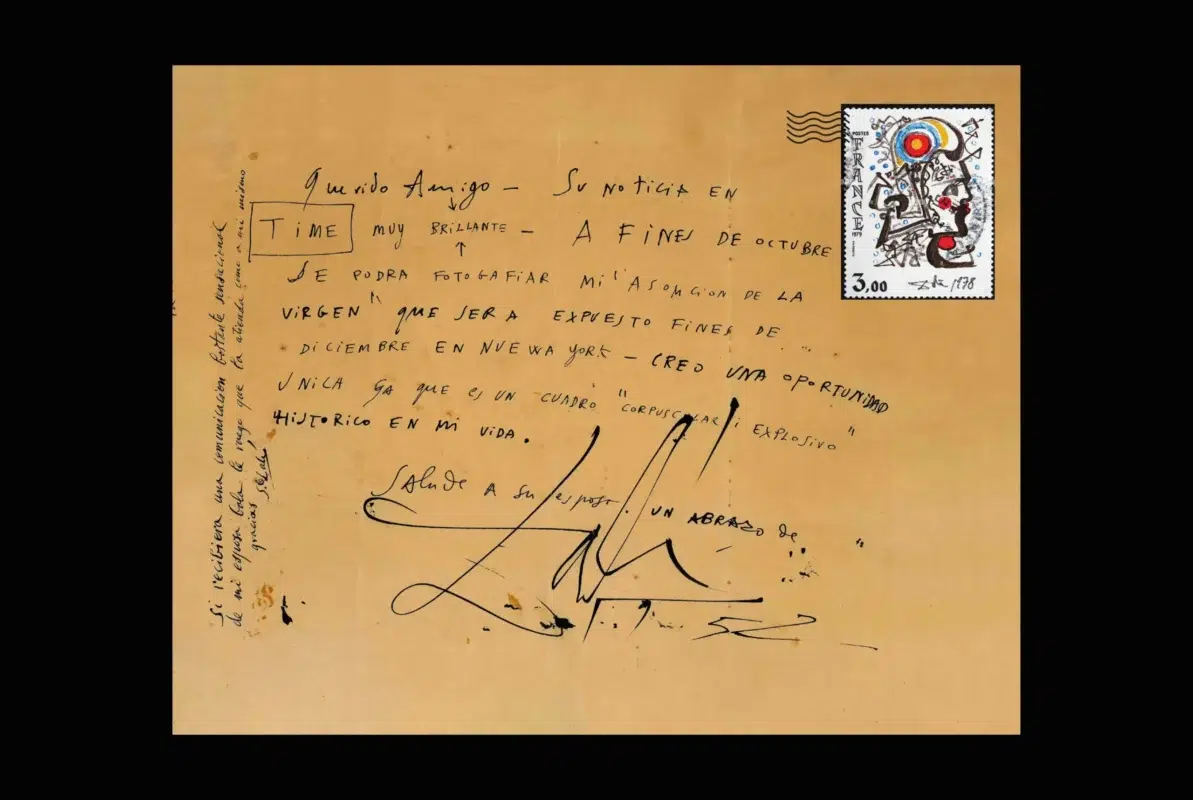 Querido Amigo — Su NOTICIA EN
TIME MUY BRILLANTE — A FINES DE OCTUBRE
SE PODRA FOTOGAFIAR MI "ASOMCION DE LA
VIRGEN" QUE SERA EXPUESTO FINES DE
DICIEMBRE EN NUEWA YORK — CREO UNA OPORTUNIDAD
UNICA YA QUE ES UN CUADRO "CORPUSCULAR i EXPLOSIVO"
HISTORICO EN MI VIDA.
SALUDE A Su esposa. UN ABRAZO de
Dalí
52
Si recibiera una comunicacion bastante sensacional
de mi esposa le ruego que la atienda como a mi mismo
gracias
S. Dalí
POSTES
FRANCE
1979
3,00
Dalí 1978